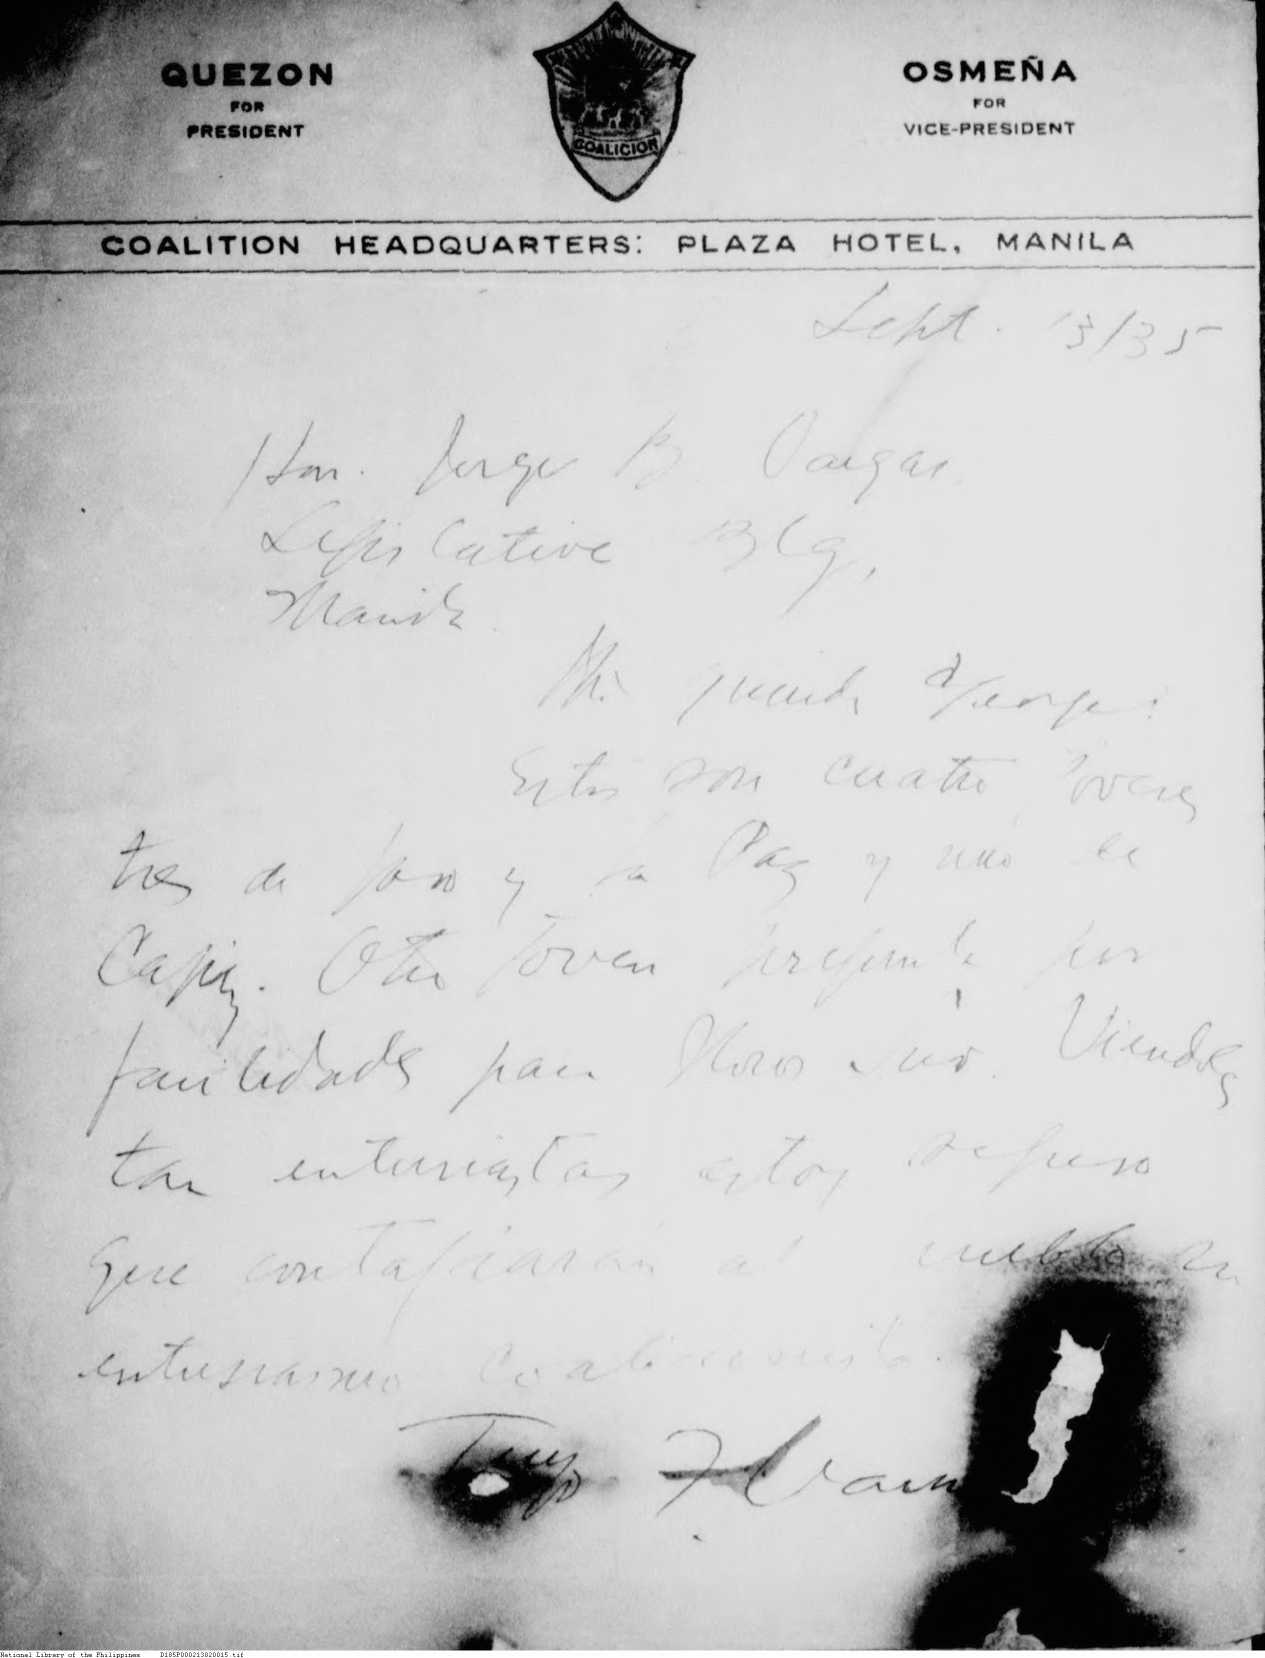 QUEZON
FOR
PRESIDENT
COALICION
OSMEÑA
FOR
VICE-PRESIDENT
COALITION HEADQUARTERS: PLAZA HOTEL, MANILA
Sept. 13/35
Hon. Jorge B. Vargas
Legislative Blg,
Manila
Mi querido Jorge:
Estos son cuatro jovenes
tres de Jaro y La Paz y uno de
Capiz. Otro joven pregunta por
facilidades para
tan entusiastas estoy seguro
que contagiaran al pueblo su
entusiasmo coalicionista.
Tuyo
National Library of the Philippines D185P000213020015.tif